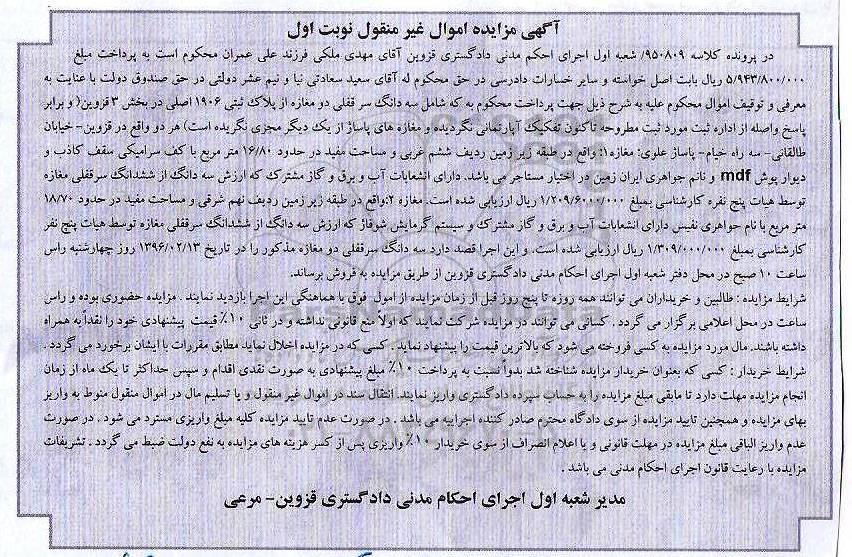 آگهی مزایده اموال غیر منقول نوبت اول
در پرونده کلاسه ۹۵۰۸۰۹/ شعبه اول اجرای احکم مدنی دادگستری قزوین آقای مهدی ملکی فرزند علی عمران محکوم است به پرداخت مبلغ
۵/۹۴۳/۸۰۰/۰۰۰ ریال بابت اصل خواسته و سایر خسارات دادرسی در حق محکوم له آقای سعید سعادتی نیا و نیم عشر دولتی در حق صندوق دولت با عنایت به
معرفی و توقیف اموال محکوم علیه به شرح ذیل جهت پرداخت محکوم به که شامل سه دانگ سر قفلی دو مغازه از پلاک ثبتی ۱۹۰۶ اصلی در بخش ۳ قزوین( و برابر
پاسخ واصله از اداره ثبت مورد ثبت مطروحه تاکنون تفکیک آپارتمانی نگردیده و مغازه های پاساژ از یک دیگر مجزی نگریده است) هر دو واقع در قزوین- خیابان
طالقانی- سه راه خیام- پاساژ علوی: مغازه۱: واقع در طبقه زیر زمین ردیف ششم غربی و مساحت مفید در حدود ۱۶/۸۰ متر مربع با کف سرامیکی سقف کاذب و
دیوار پوش mdf و نانم جواهری ایران زمین در اختیار مستاجر می باشد. دارای انشعابات آب و برق و گاز مشترک که ارزش سه دانگ از ششدانگ سرقفلی مغازه
توسط هیات پنج نفره کارشناسی بمبلغ ۱/۲۰۹/۶۰۰۰/۰۰۰ ریال ارزیابی شده است. مغازه ۲:واقع در طبقه زیر زمین ردیف نهم شرقی و مساحت مفید در حدود ۱۸/۷۰
متر مربع با نام حواهری نفیس دارای انشعابات آب و برق و گاز مشترک و سیستم گرمایش شوفاژ که ارزش سه دانگ از ششدانگ سرقفلی مغازه توسط هیات پنج نفر
کارشناسی بمبلغ ۱/۳۰۹/۰۰۰/۰۰۰ ریال ارزیابی شده است. و این اجرا قصد دارد سه دانگ سرقفلی دو مغازه مذکور را در تاریخ ۱۳۹۶/۰۲/۱۳ روز چهارشنبه راس
ساعت ۱۰ صبح در محل دفتر شعبه اول اجرای احکام مدنی دادگستری قزوین از طریق مزایده به فروش برساند.
شرایط مزایده : طالبین و خریداران می توانند همه روزه تا پنج روز قبل از زمان مزایده از امول فوق با هماهنگی این اجرا بازدید نمایند . مزایده حضوری بوده و راس
ساعت در محل اعلامی برگزار می گردد . کسانی می توانند در مزایده شرکت نمایند که اولاً منع قانونی نداشته و در ثانی ۱۰٪ قیمت پیشنهادی خود را نقداً به همراه
داشته باشند. مال مورد مزایده به کسی فروخته می شود که بالاترین قیمت را پیشنهاد نماید . کسی که در مزایده اخلال نماید مطابق مقررات با ایشان برخورد می گردد .
شرایط خریدار : کسی که بعنوان خریدار مزایده شناخته شد بدواً نسبت به پرداخت ۱۰٪ مبلغ پیشنهادی به صورت نقدی اقدام و سپس حداکثر تا یک ماه از زمان
انجام مزایده مهلت دارد تا مابقی مبلغ مزایده را به حساب سپرده دادگستری واریز نمایند. انتقال سند در اموال غیر منقول و یا تسلیم مال در اموال منقول منوط به واریز
بهای مزایده و همچنین تایید مزایده از سوی دادگاه محترم صادر کننده اجراییه می باشد . در صورت عدم تایید مزایده کلیه مبلغ واریزی مسترد می شود . در صورت
عدم واریز الباقی مبلغ مزایده در مهلت قانونی و یا اعلام انصراف از سوی خریدار ۱۰٪ واریزی پس از کسر هزینه های مزایده به نفع دولت ضبط می گردد . تشریفات
مزایده با رعایت قانون اجرای احکام مدنی می باشد .
مدیر شعبه اول اجرای احکام مدنی دادگستری قزوین- مرعی